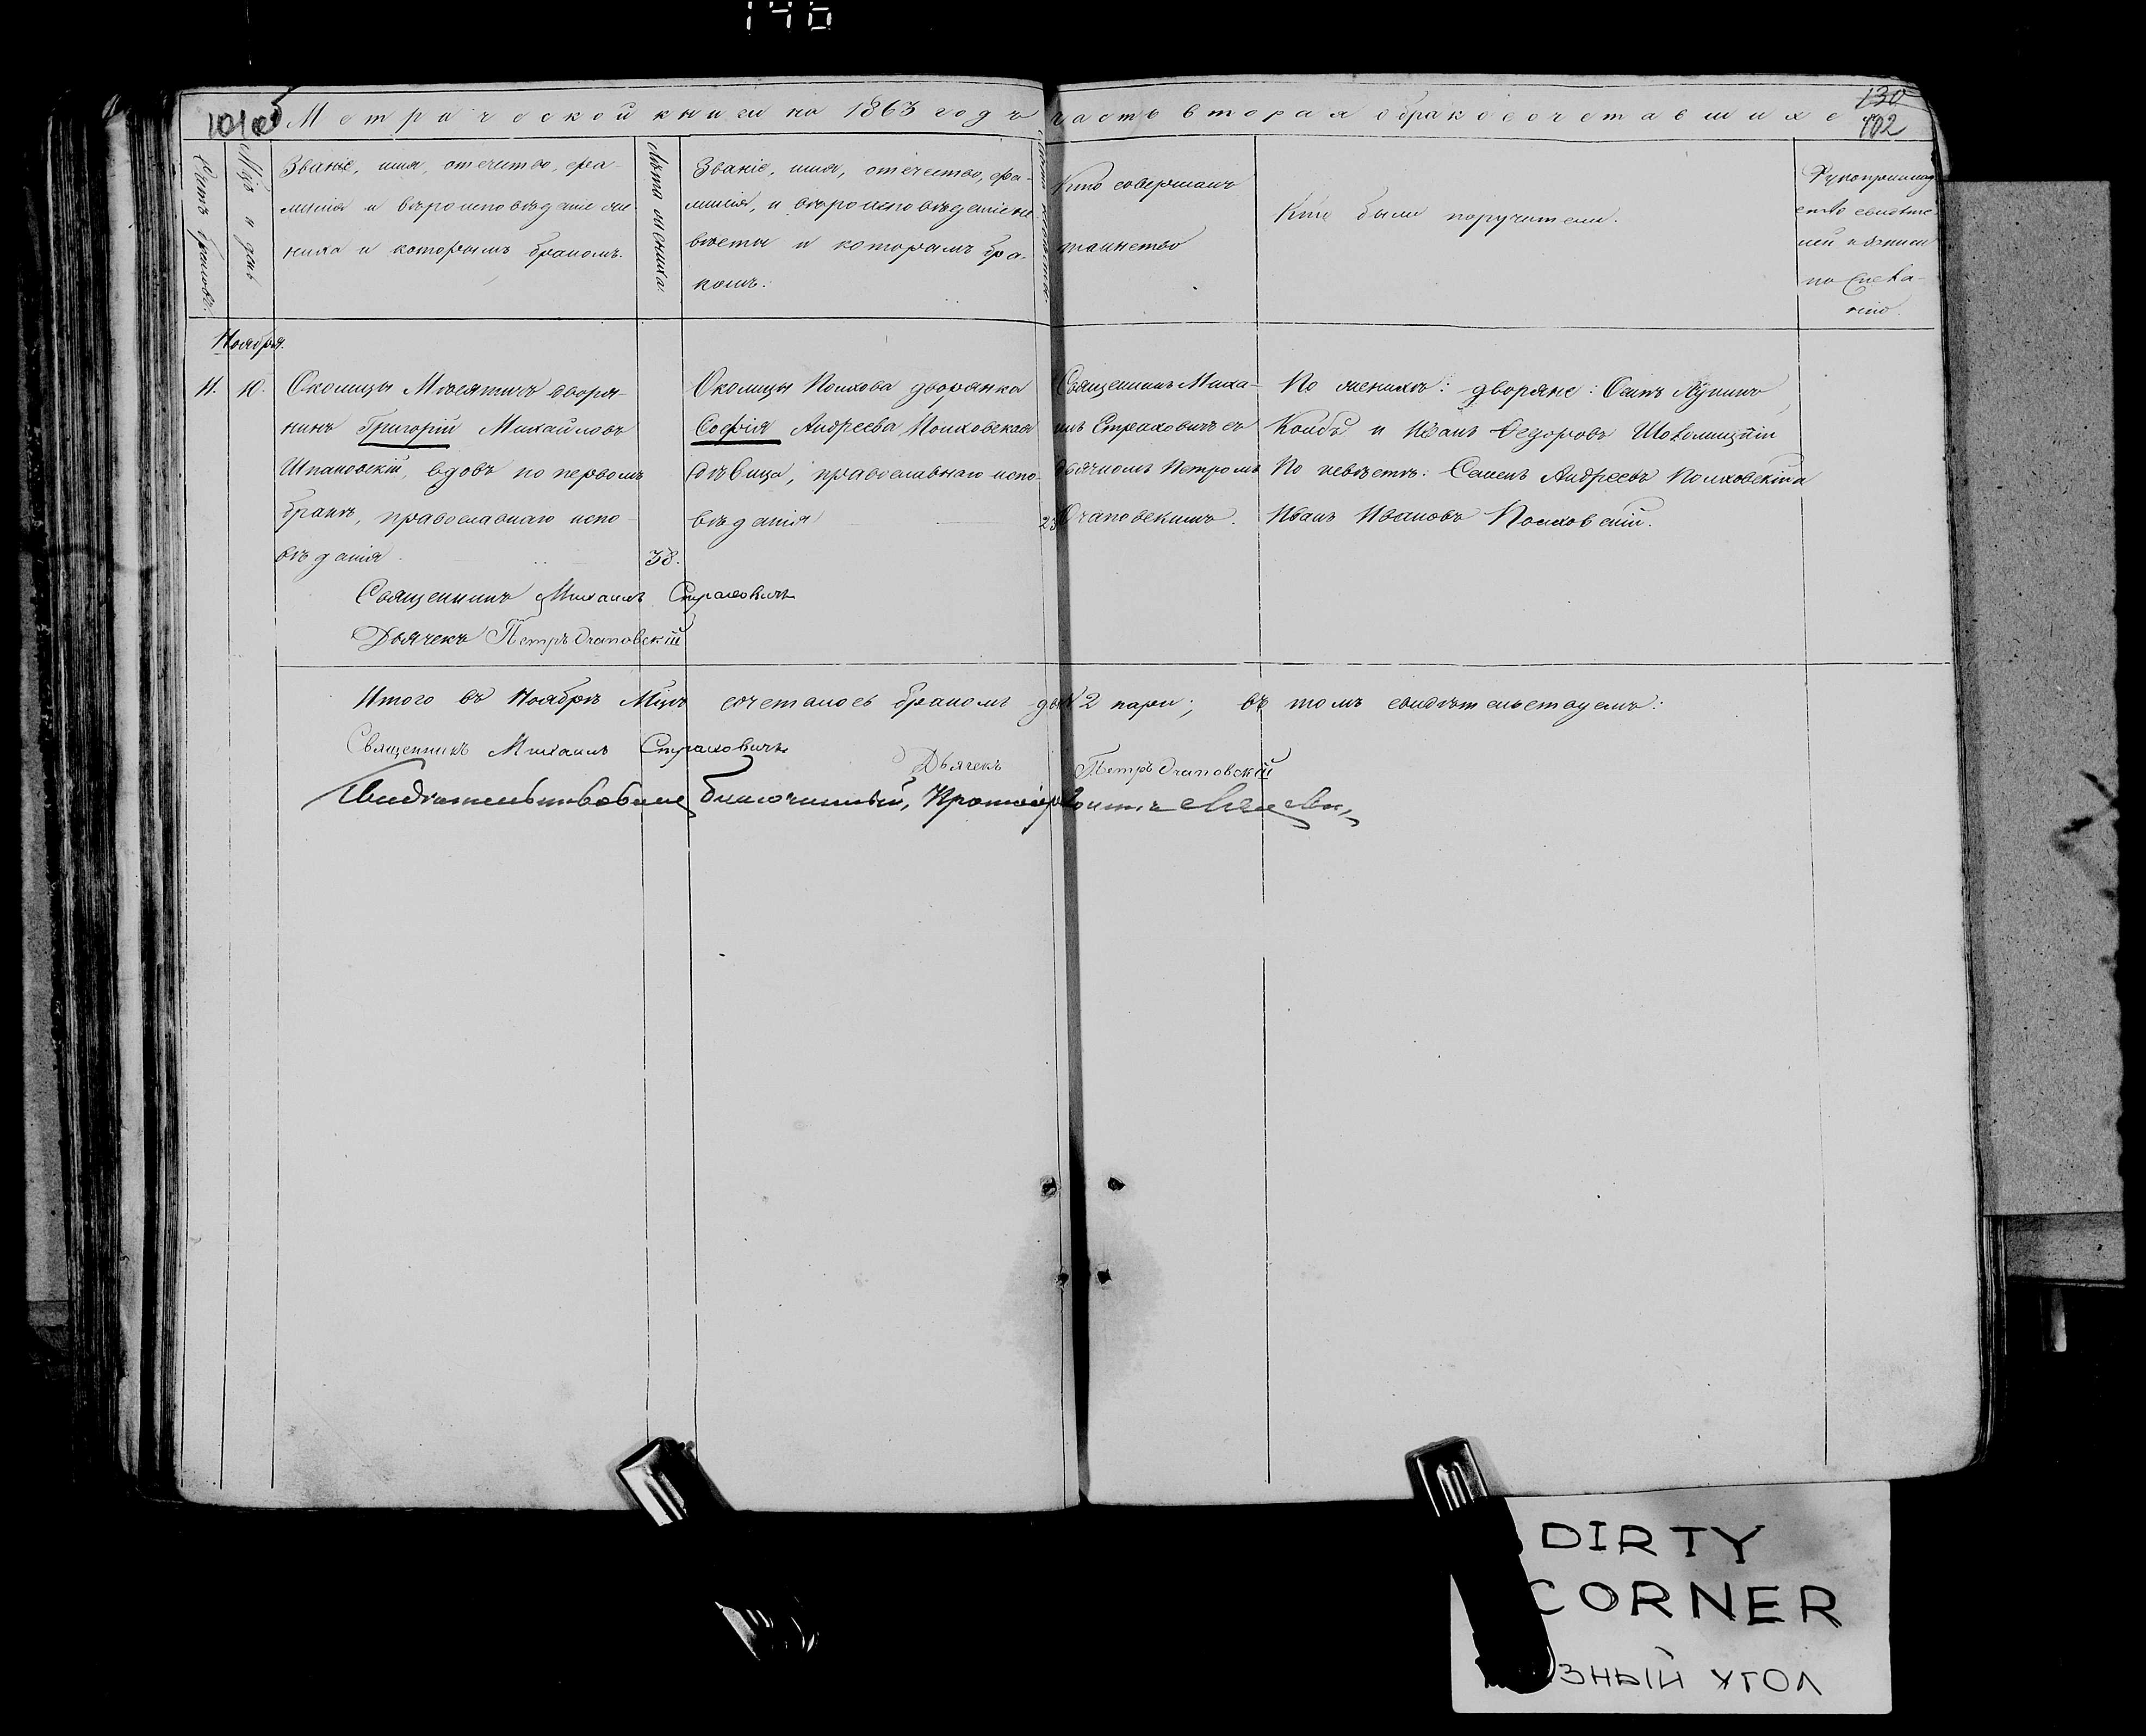 146
101об
Метрической книги на 1863 годъ часть вторая о бракосочетавшихся
130
102
Счетъ браковъ.
Мцъ и день
Званіе, имя, отечество, фа-
милія и вѣроисповѣданіе же-
ниха и которымъ бракомъ.
Лѣта жениха.
Званіе, имя, отечество, фа-
милія, и вѣроисповѣданіе не-
вѣсты и которымъ бра-
комъ.
Лѣта невѣсты.
Кто совершалъ
таинство
Кто были поручители.
Рукоприклад
ство свидѣте-
лей записи
по
Ноября.
11. 10.
Околицы Мнсятичъ дворя-
нинъ Григорій Михайловъ
Шпановскій, вдовъ по первомъ
бракѣ, православнаго испо-
вѣданія.
38.
Околицы Полхова дворянка
Софія Андреева Полховская
дѣвица, православнаго испо-
вѣданія
23
Священникъ Миха-
илъ Страховичъ съ
дьячкомъ Петромъ
Очаповскимъ.
По женихѣ: дворяне: Осипъ
и Иванъ Ѳедоровъ
По невѣстѣ: Семенъ Андреевъ Полховскій и
Иванъ Ивановъ Полховскій.
Священникъ Михаилъ Страховичъ
Дьячекъ Петръ Очаповскій
Итого въ Ноябрѣ Мцѣ сочеталось бракомъ двѣ 2 пары; въ томъ свидѣтельствуемъ:
Священникъ Михаилъ Страховичъ
Дьячекъ Петръ Очаповскій
Свидѣтельствовалъ благочинный, Протоіерей
DIRTY
CORNER
ЗНЫЙ УГОЛ